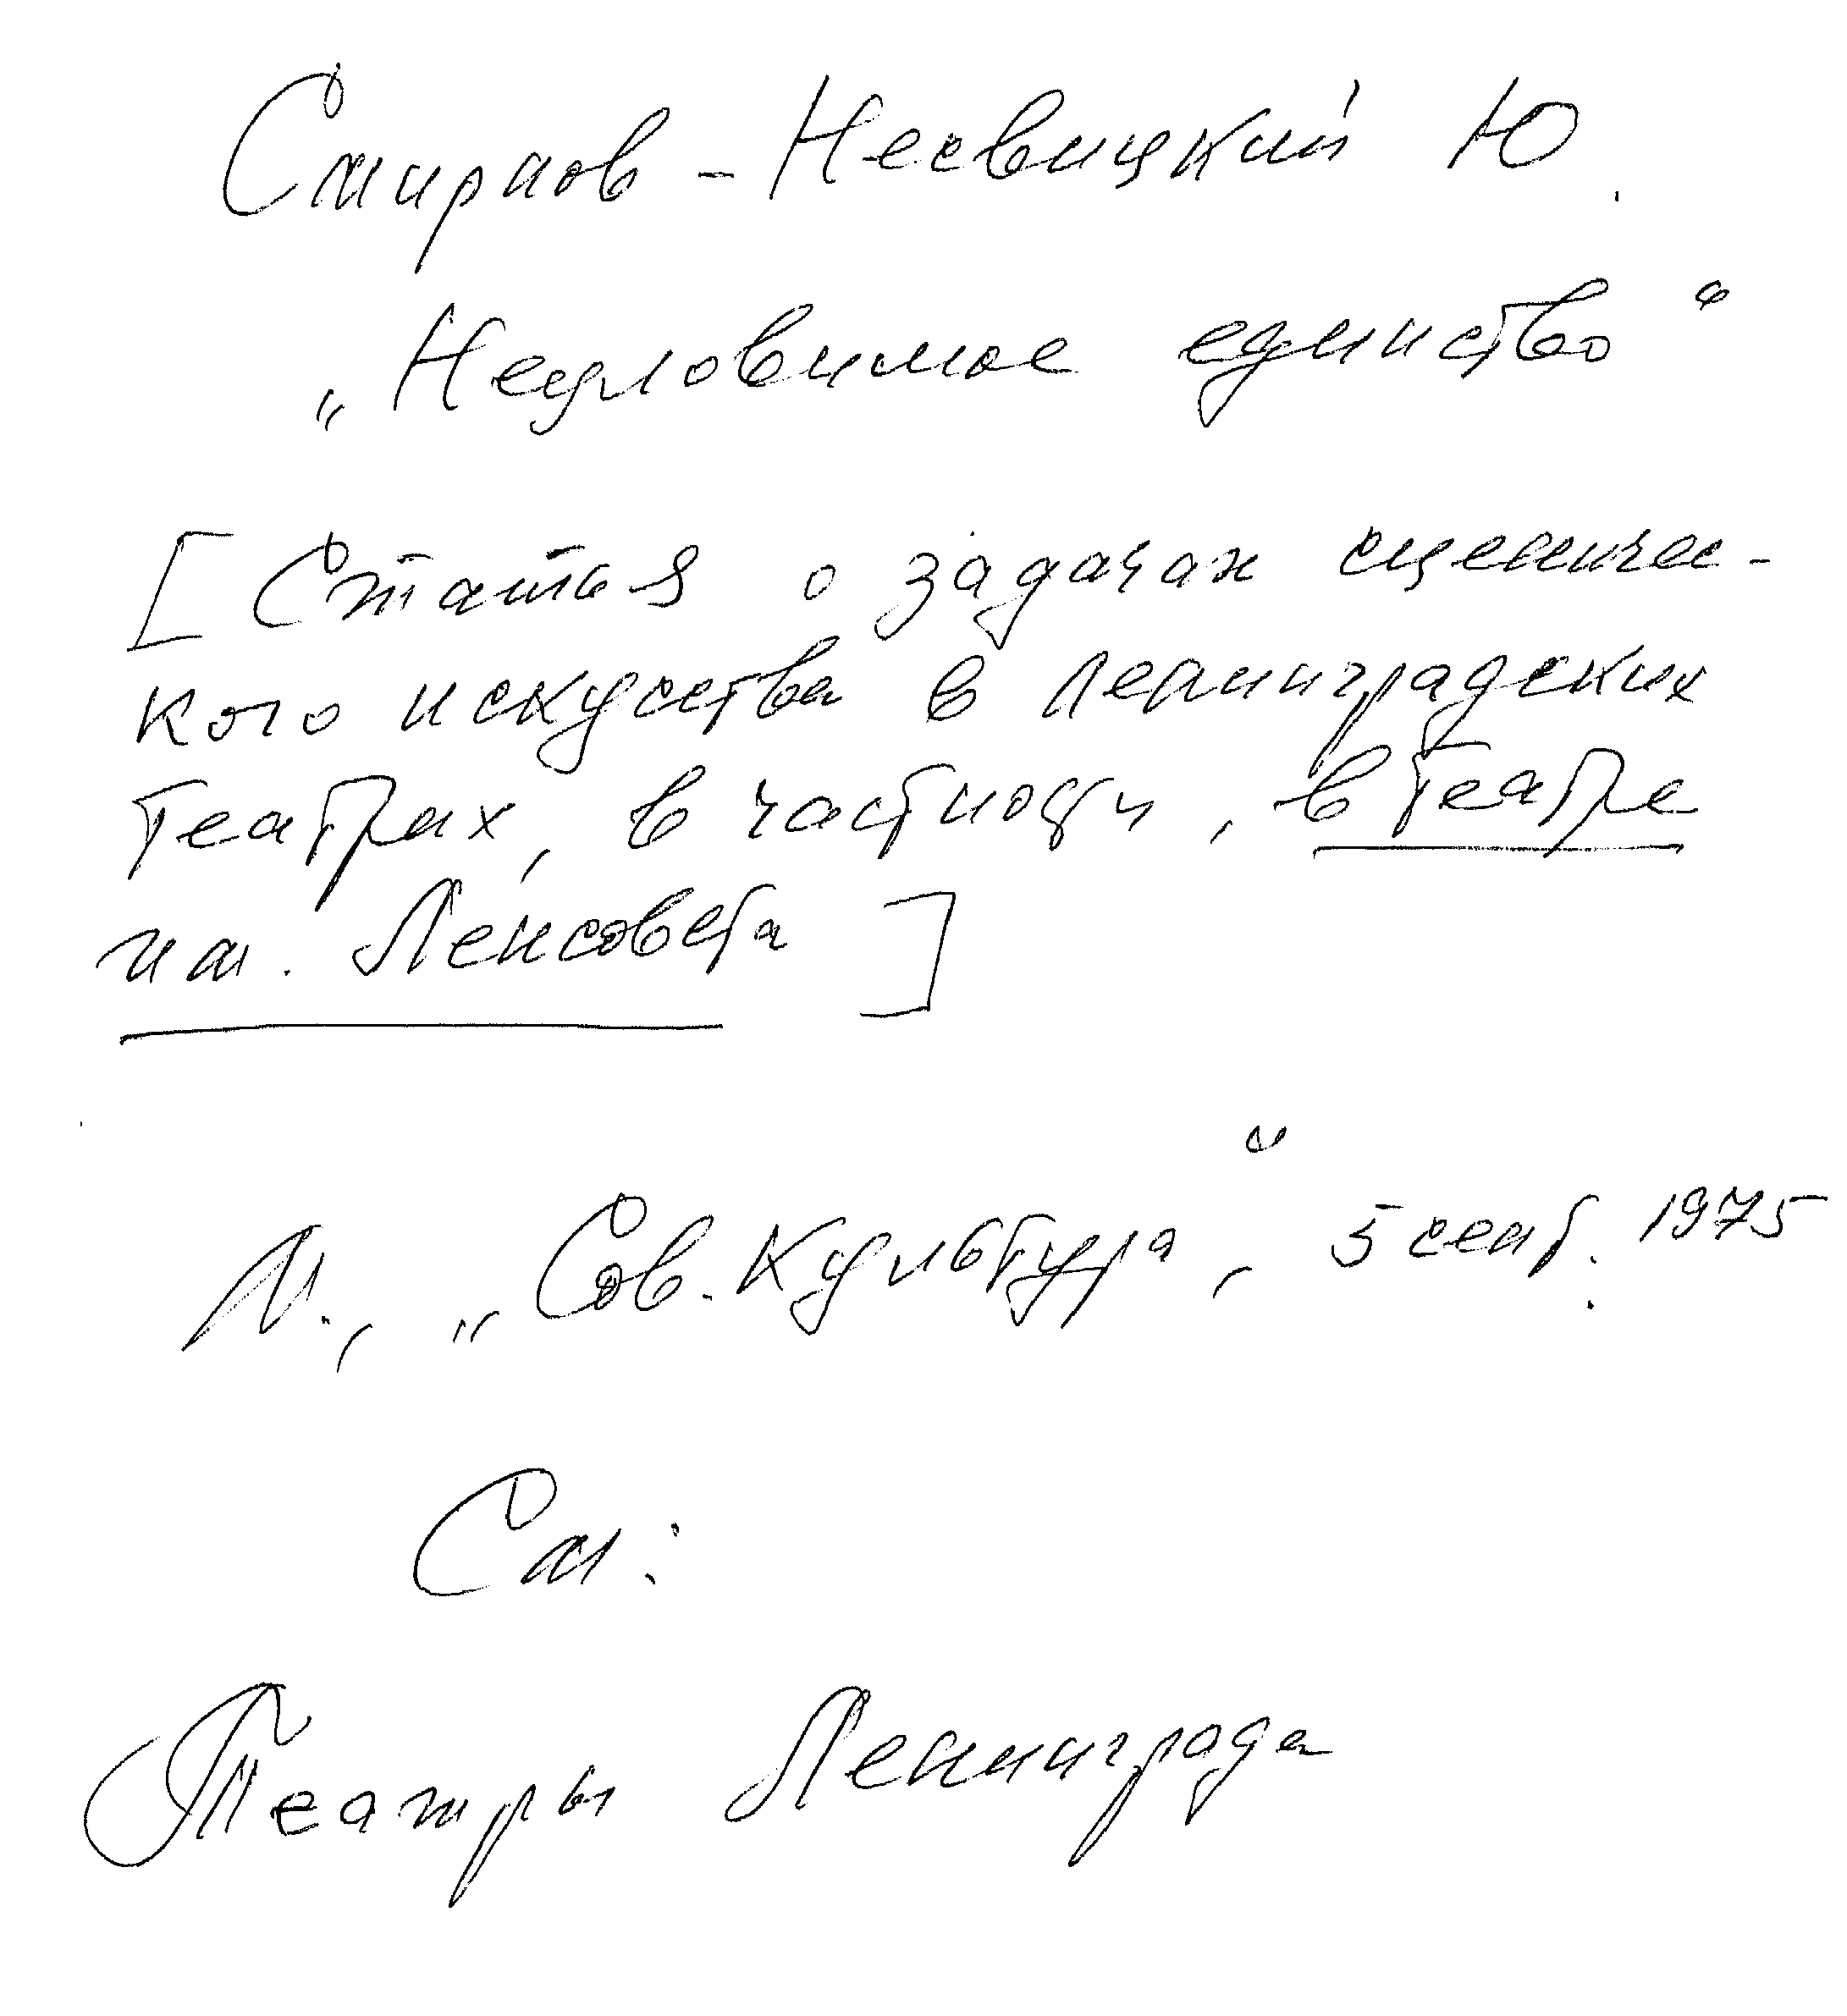 Смирнов-Несвицкий Ю.
„Неуловимое единство“
[Статья о задачах сценичес-
кого искусства в ленинградских
театрах, в частности, в театре
им. Ленсовета]
М., „Сов. культура“, 5 сент. 1975
См:
Театры Ленинграда